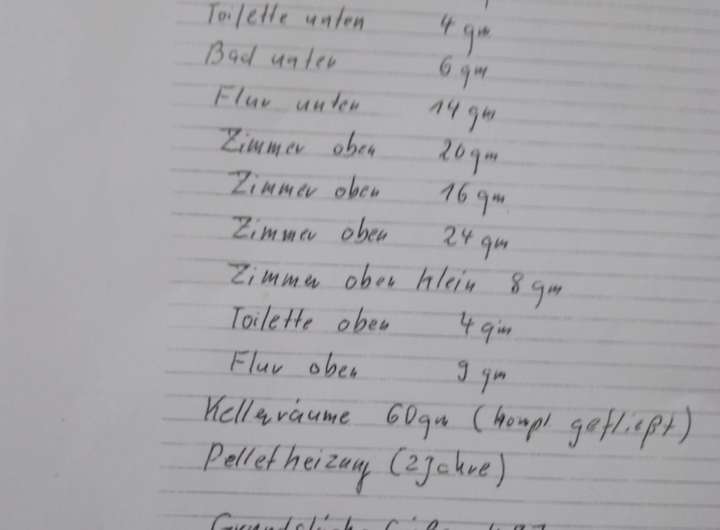 Toilette unten 4 qm
Bad unten 6 qm
Flur unten 14 qm
Zimmer oben 20 qm
Zimmer oben 16 qm
Zimmer oben 24 qm
Zimmer oben klein 8 qm
Toilette oben 4 qm
Flur oben 9 qm
Kellerräume 60 qm (kompl gefließt)
Pelletheizung (2 Jahre)